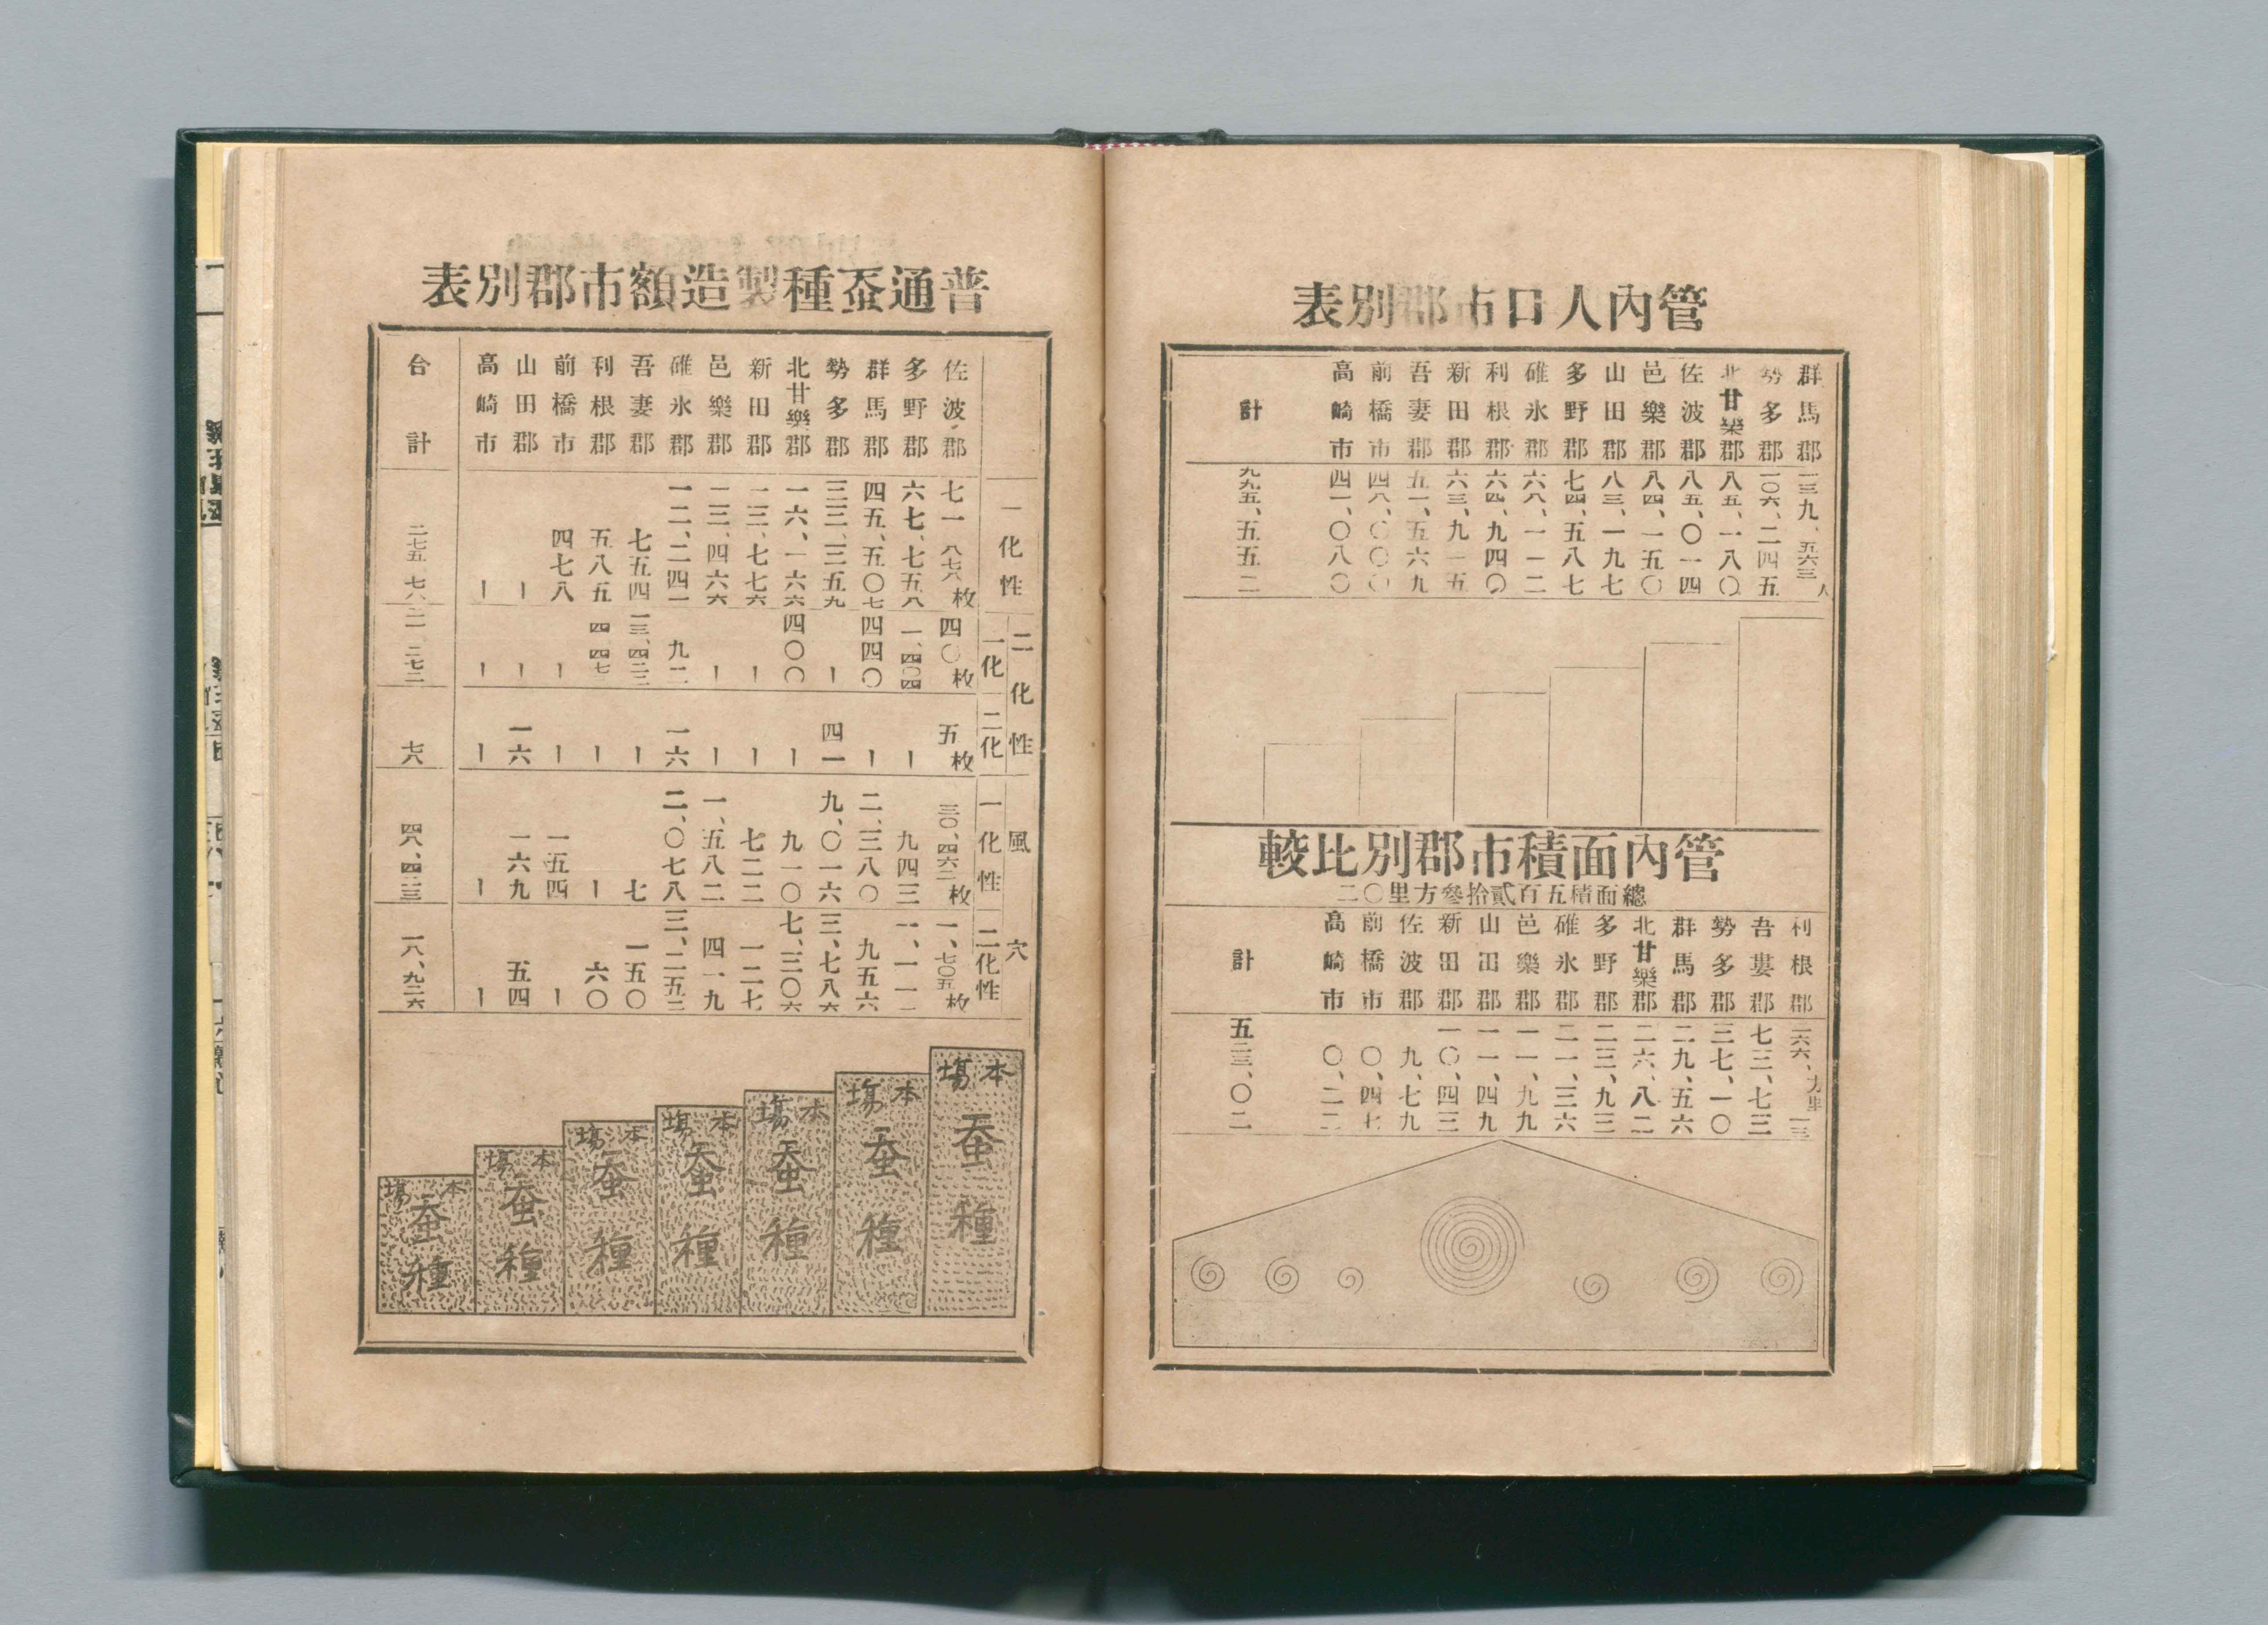 管內人口市郡別表
群馬郡 一三九、五六三人
勢多郡 一〇六、二四五
北甘樂郡 八五、一八〇
佐波郡 八五、〇一四
邑樂郡 八四、一五〇
山田郡 八三、一九七
多野郡 七四、五八七
碓氷郡 六八、一一二
利根郡 六四、九四〇
新田郡 六三、九一五
吾妻郡 五一、五六九
前橋市 四八、〇〇〇
高崎市 四一、〇八〇
計 九九五、五五二
管內面積市郡別比較
總面積五百貳拾參方里〇二
利根郡 二六六、方里一三
吾妻郡 七三、七三
勢多郡 三七、一〇
群馬郡 二九、五六
北甘樂郡 二六、八二
多野郡 二三、九三
碓氷郡 二一、三六
邑樂郡 一一、九九
山田郡 一一、四九
新田郡 一〇、四三
佐波郡 九、七九
前橋市 〇、四七
高崎市 〇、二二
計 五二三、〇二
普通蚕種製造額市郡別表
一化性 二化性 一化 二化 風穴 一化性 二化性
佐波郡 七一、八七六枚 四〇枚 五枚 三〇、四六二枚 一、七〇五枚
多野郡 六七、七五八 一、四〇四 ー 九四三 一、一一一
群馬郡 四五、五〇七 四四〇 ー 二、三八〇 九五六
勢多郡 三三、三五九 ー 四一 九、〇一六 三、七八六
北甘樂郡 一六、一六六 四〇〇 ー 九一〇 七、三〇六
新田郡 一三、七七六 ー ー 七二二 一二七
邑樂郡 一三、四六六 ー ー 一、五八二 四一九
碓氷郡 一二、二四一 九二 一六 二、〇七八 三、二五二
吾妻郡 七五四 一三、四二二 ー 七 一五〇
利根郡 五八五 ー ー 六〇
前橋市 四七八 ー ー 一五四 ー
山田郡 ー ー 一六 一六九 五四
高崎市 ー ー ー ー ー
合計 七八 四八、四二三 一八、九二六
本場 蚕種
本場 蚕種
本場 蚕種
本場 蚕種
本場 蚕種
本場 蚕種
本場 蚕種